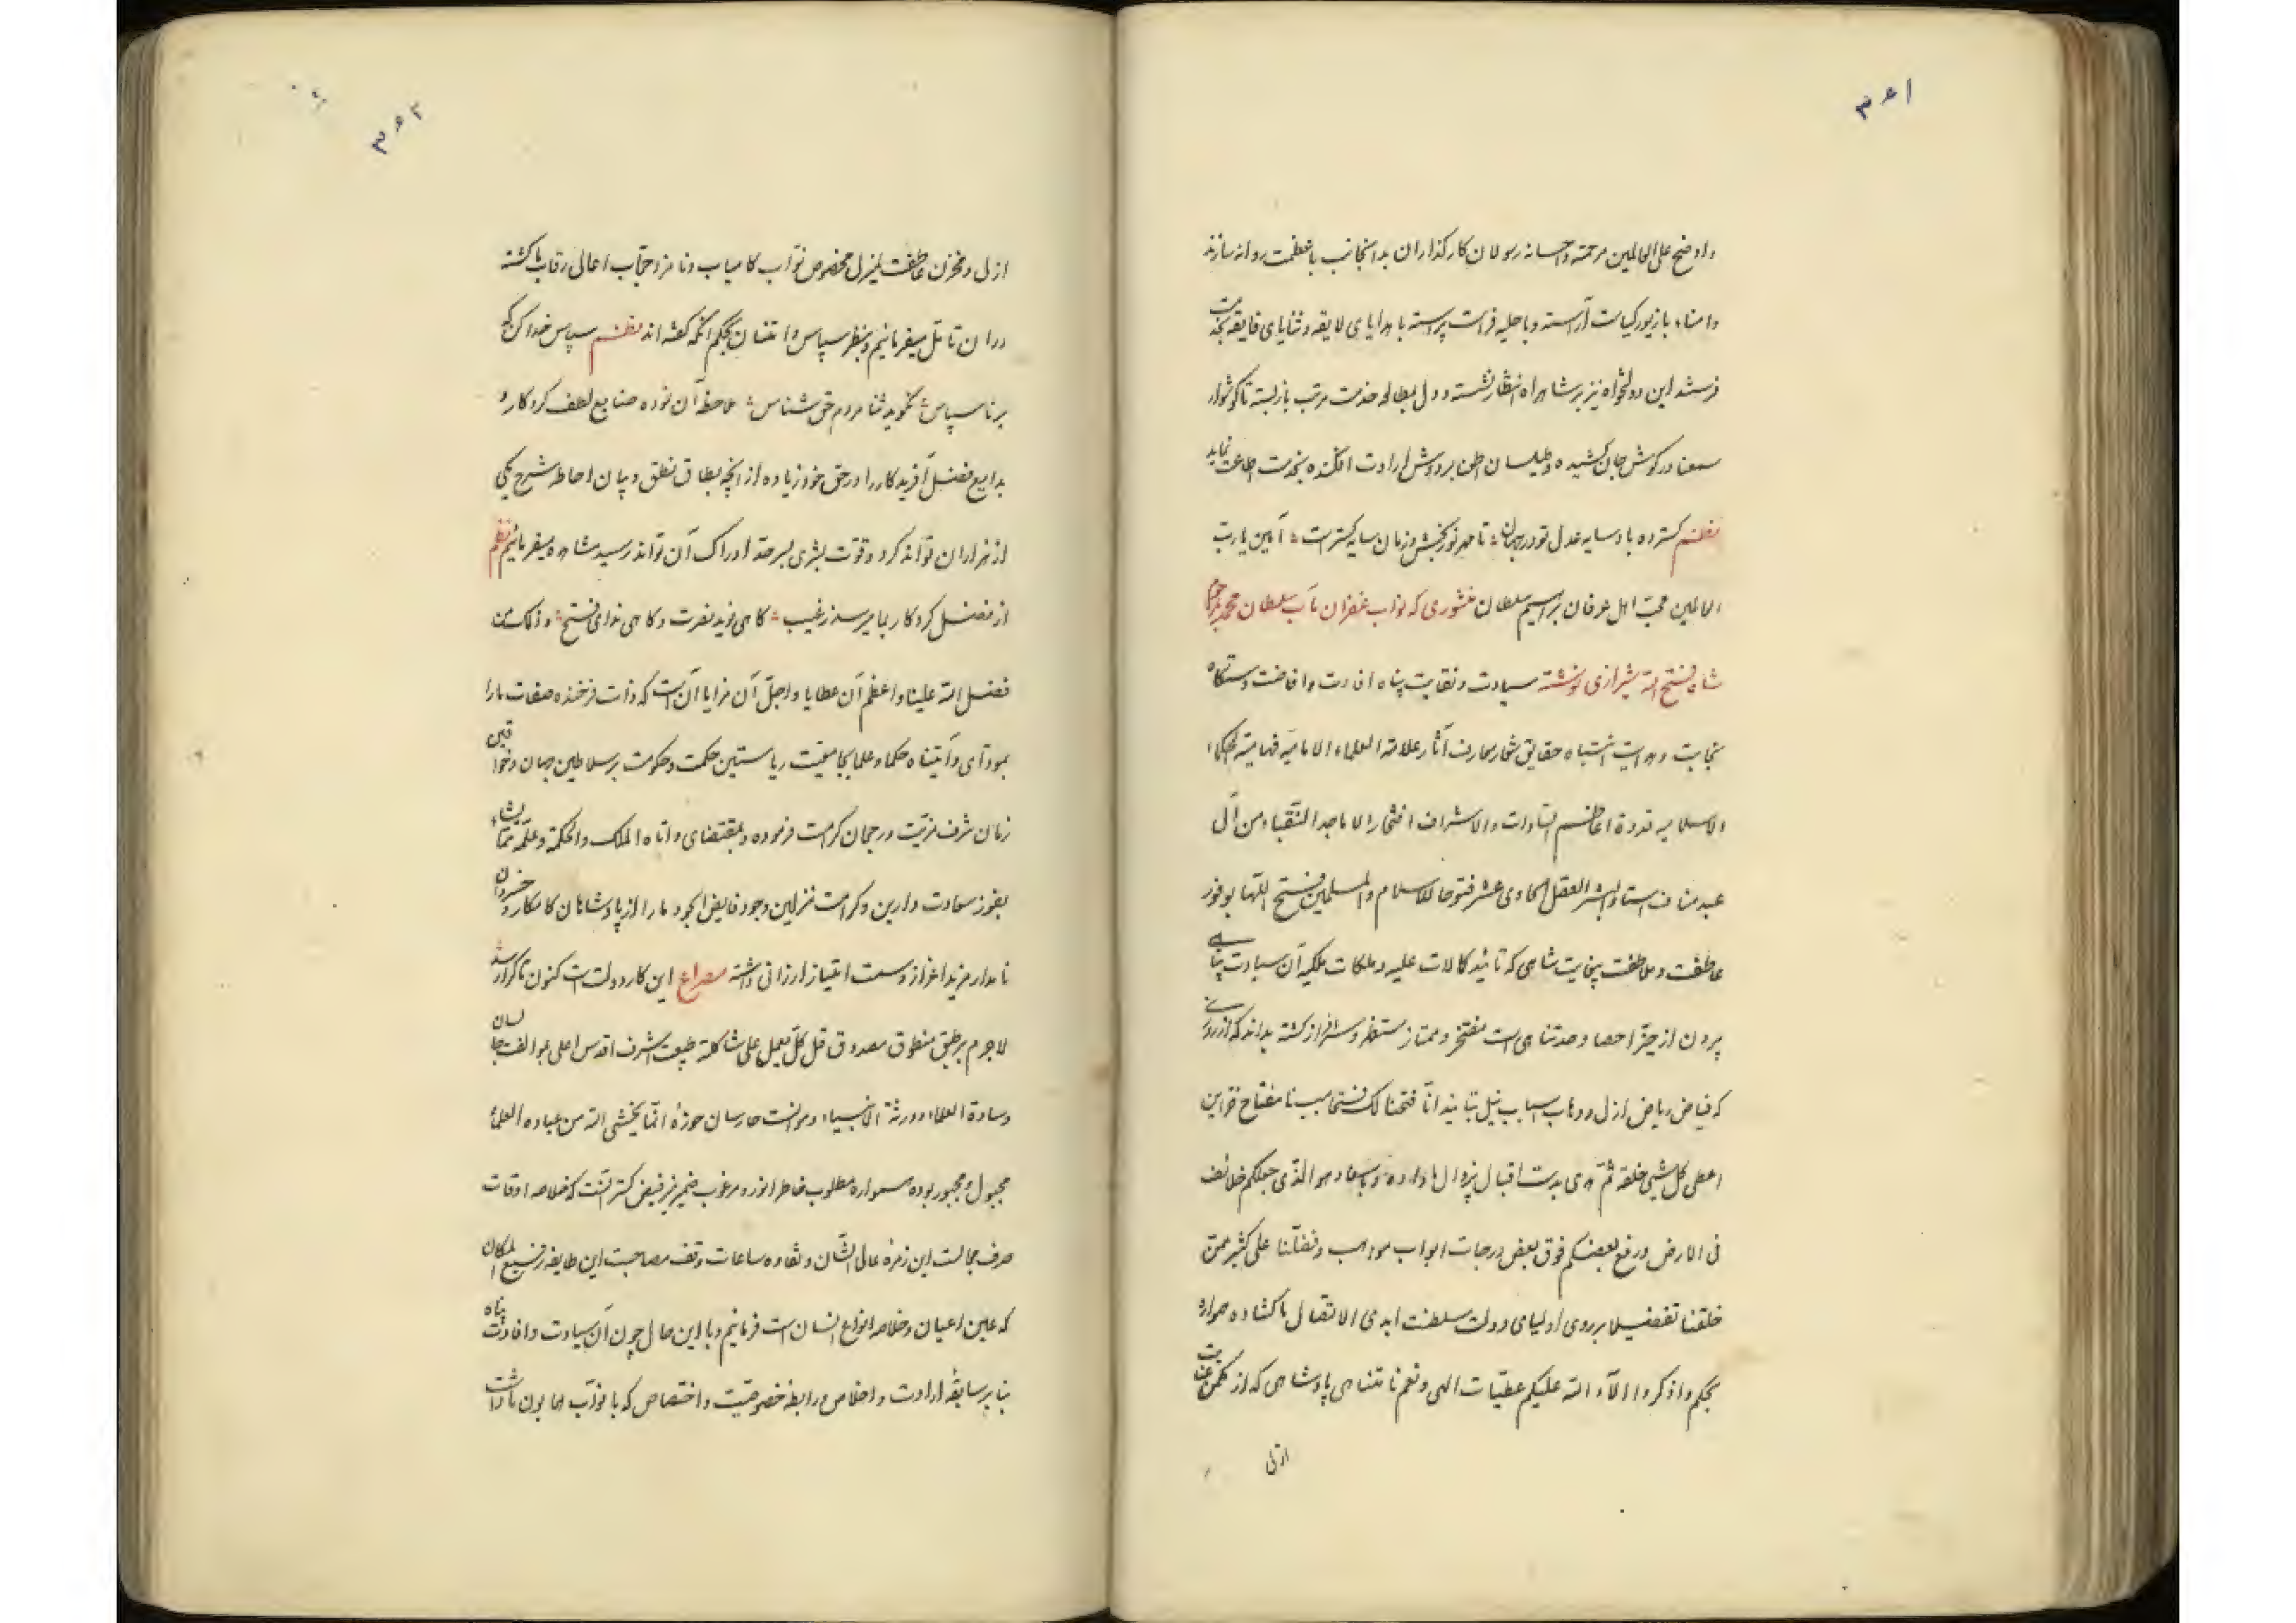 ۳۶۱
و اوضح علی العالمین مرحمته و احسانه رسولان کارگذاران بدانجانب با عظمت روانه سازند
و امناء با زیور کیاست آراسته و با حلیه فراست پیراسته با هدایای لایقه و ثنایای فایقه بخدمت
فرستند این دولتخواه نیز بر شاهراه انتظار نشسته و دل بمطالعه خدمت مرتب بازبسته تا گوشوار
سمعنا در گوش جان کشیده و طیلسان اطعنا بر دوش ارادت افکنده بخدمت اطاعت نماید
نظم گسترده باد سایه عدل تو در جهان تا مهر نوربخش و زمان سایه گستر است آمین یا رب
العالمین محب اهل عرفان ابراهیم سلطان منشوری که نواب غفران مآب سلطان محمد
شاه فتح الله شیرازی نوشته سیادت و نقابت پناه افادت و افاضت دستگاه
نجابت و هدایت انتباه حقایق شعار معارف آثار علامة العلماء الامامیه فهامیة الحکماء
الاسلامیه قدوة اعاظم السادات و الاشراف افتخار الاماجد النقباء من آل
عبد مناف استاد البشر العقل الحادی عشر فتوحا للاسلام و المسلمین فتح اللها بوفور
عاطفت و ملاطفت بیغایت شاهی که تائید کمالات علیه و ملکات ملکیه آن سیادت پناهی
بیرون از حیز احصا و حد تناهی است مفتخر و ممتاز مستظهر و سرافراز گشته بداند که از روزی
که فیاض ریاض ازل و وهاب اسباب نیل بتایید انا فتحنا لک فتحا مبینا مفتاح خزاین
اعطی کل شیی خلقه ثم هدی بدست اقبال بیزوال ما داده و بمفاد هو الذی جعلکم خلائف
فی الارض و رفع بعضکم فوق بعض درجات ابواب مواهب و فضلنا علی کثیر ممن
خلقنا تفضیلا بر روی اولیای دولت سلطنت ابدی الاتصال ما گشاده همواره
بحکم و اذکروا آلاء الله علیکم عطیات الهی و نعم نامتناهی پادشاهی که از مکمن عنایت
ازلی
۳۶۲
ازل و مخزن عاطفت لم یزل مخصوص نواب کامیاب و نامزد حجاب اعالی رقاب ما گشته
در ان تامل میفرمائیم و بنظر سپاس و امتنان بحکم انکه گفته اند نظم سپاس خدا کن که
بر ناسپاس نگوید ثنا مردم حق شناس ملاحظه آن نموده صنایع لطف کردکار و
بدایع فضل آفریدکار را در حق خود زیاده از انچه بطاق نطق و بیان احاطه شرح یکی
از هزاران تواند کرد و قوت بشری بسرحد ادراک آن تواند رسید مشاهده میفرمائیم نظم
از فضل کردکار بما میرسد ز غیب گاهی نوید نصرت و گاهی ندای فتح و ذلک من
فضل الله علینا و اعظم آن عطایا و اجل آن مزایا آنست که ذات فرخنده صفات ما را
بمودآی و آتیناه حکما و علما بجامعیت ریاستین حکمت و حکومت بر سلاطین جهان و خواقین
زمان شرف مزیت و رجحان کرامت فرموده و بمقتضای و اتاه الملک و الحکمة و علمه مما یشاء
بفوز سعادت دارین و کرامت منزلین وجود فایض الجود ما را از پادشاهان کامکار و خسروان
نامدار مزید اعزاز و سمت امتیاز ارزانی داشته مصراع این کار دولت است کنون تا کرا رسد
لاجرم بر طبق منطوق مصدوق قل کل یعمل علی شاکلته طبیعت اشرف اقدس اعلی بموالفت جالسان
وسادة العلماء ورثة الانبیاء و موانست حارسان حوزه انما یخشی الله من عباده العلماء
مجبول و مجبور بوده همواره مطلوب خاطر انور و مرغوب ضمیر منیر فیض گستر آنست که خلاصه اوقات
صرف مجالست این زمره عالی الشان و نقاوه ساعات وقف مصاحبت این طایفه رفیع المکان
که عین اعیان و خلاصه انواع انسان است فرمائیم و با این حال چون آن سیادت و افادت پناه
بنابر سابقه ارادت و اخلاص و رابطه خصوصیت و اختصاص که با نواب همایون ما داشت